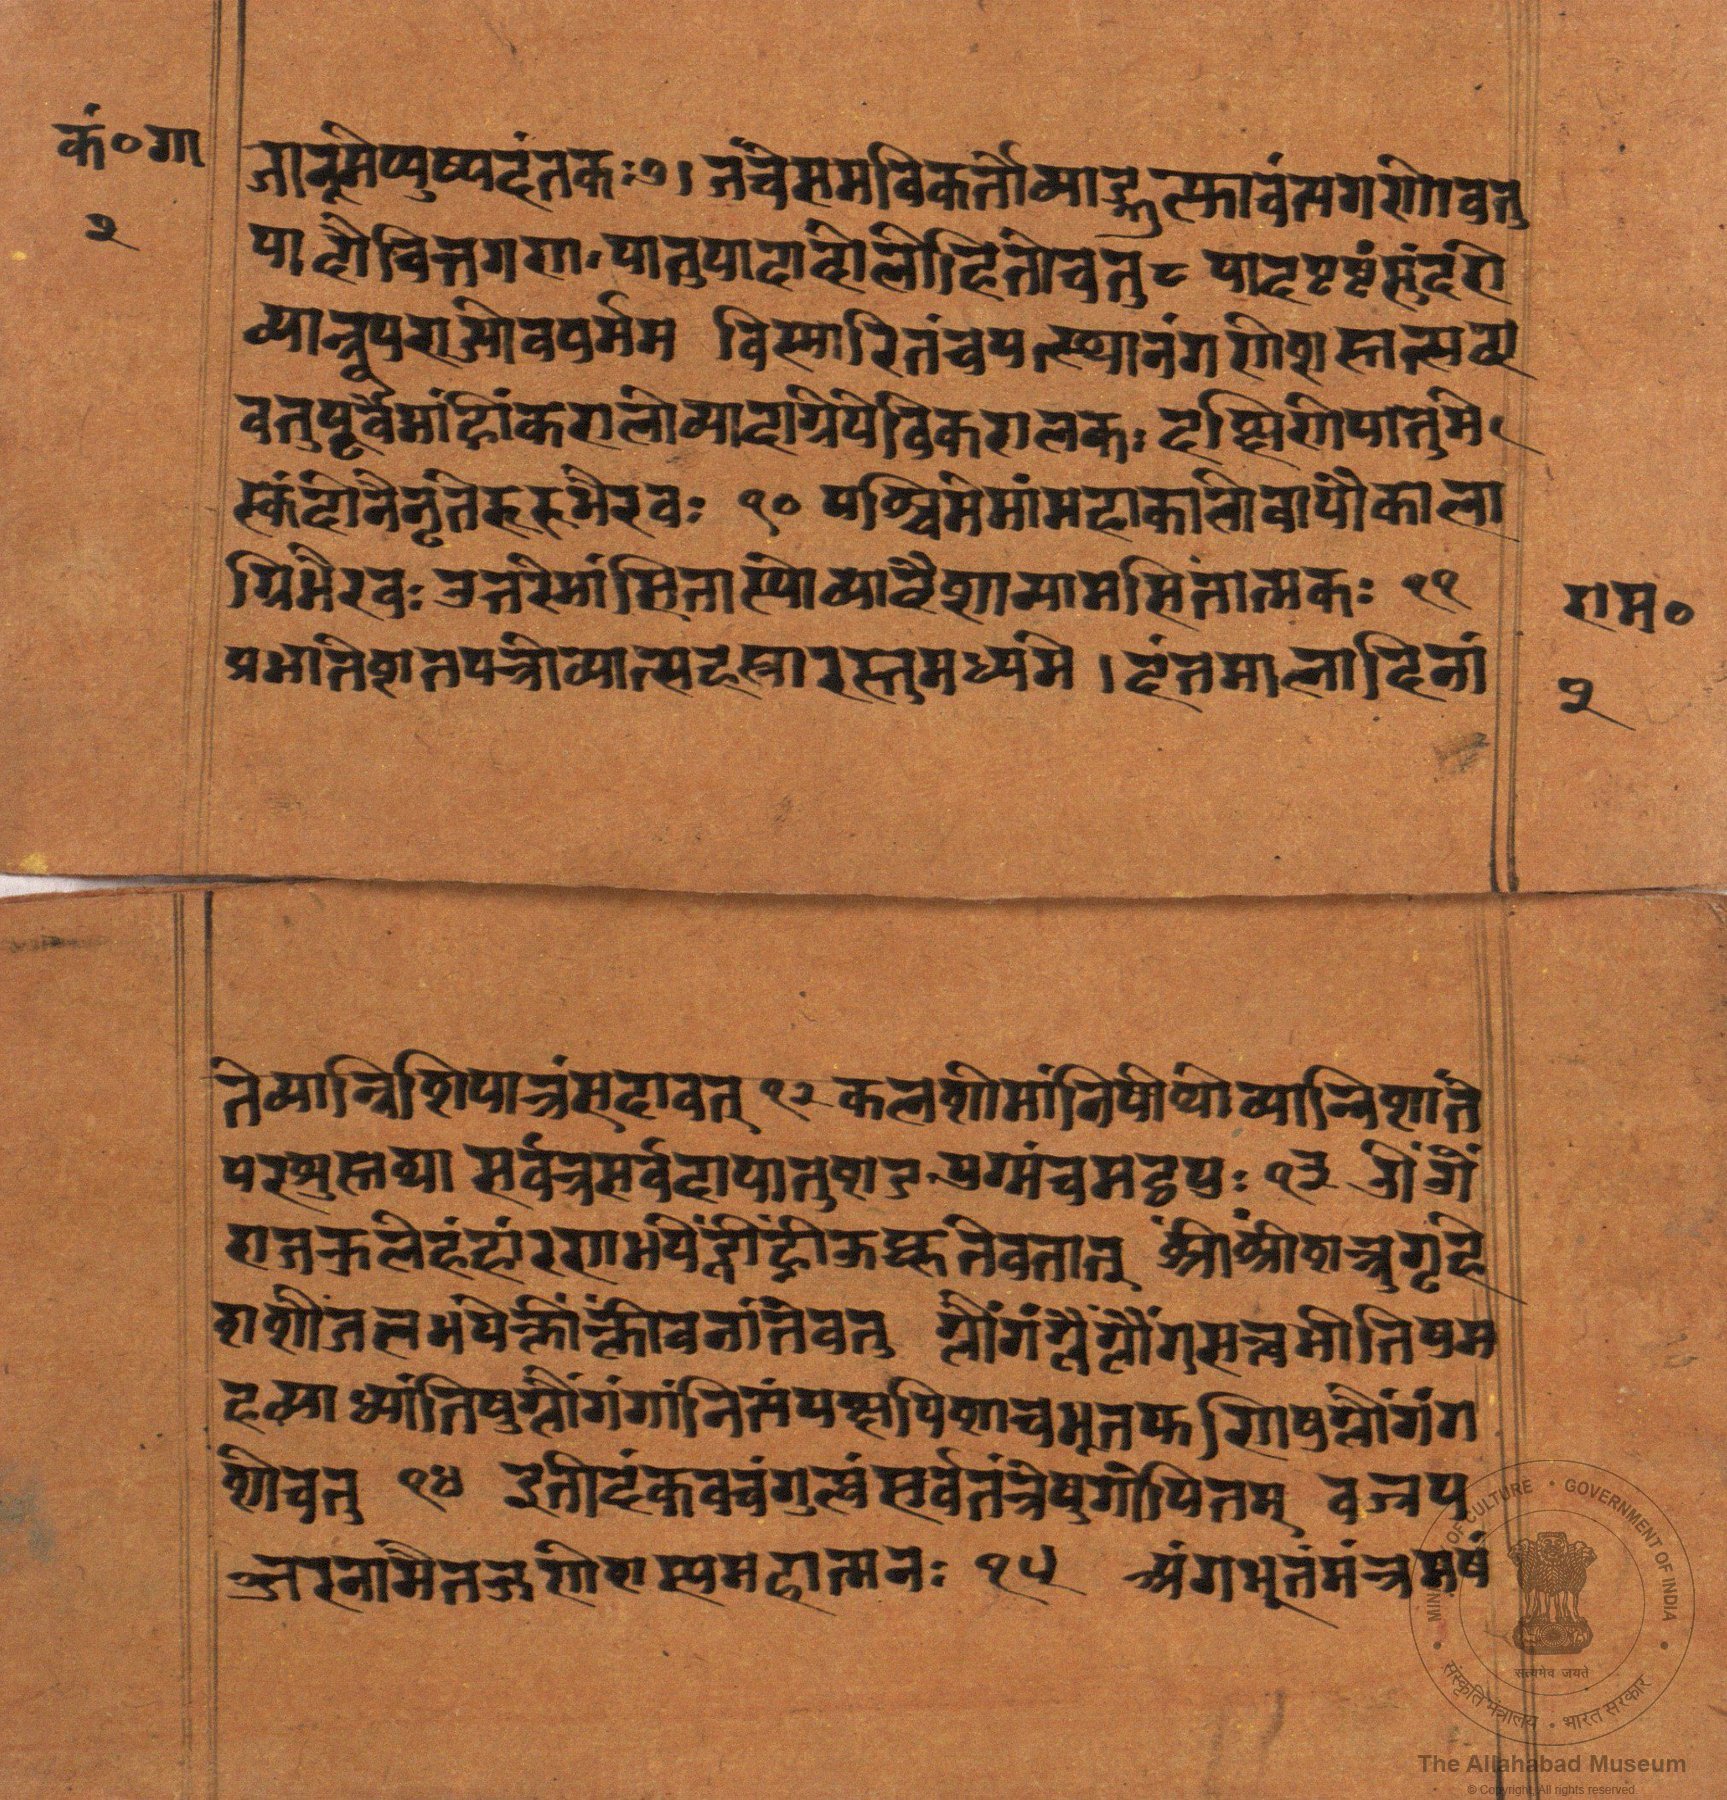 कं०गा
२
जानूमेप्पुष्पदंतकः७। जंघेममविकर्तोव्याद्गुल्फावंत्यगणोवतु
पादौचित्तगणः पातुपादाधोलोहितोवतु ८ पादपृष्टंसुंदरो
व्यान्नूपुराढ्योवपुर्मम विस्मारितंचयत्स्थानंगणेशस्तत्सदा
वतुपूर्वेमांह्रींकरालोव्यादाग्नेयेविकरालकः दक्षिणेपातुमे
स्कंदोनैरृतेरुरुभैरवः १० पश्चिमेमांमहाकालोवायौकाला
ग्निभैरवः उत्तरेमांसितास्योव्यादैशान्यामसितात्मकः ११
प्रभातेशतपत्रोव्यात्सहस्रारस्तुमध्यमे । दंतमालादिनां
राम०
२
तेव्यान्निशिपात्रंसदावतु १२ कलशोमांनिषीथेव्यान्निशांते
परशुस्तथा सर्वत्रसर्वदापातुशङ्खयुग्मंचमद्वपुः १३
राजकुलेहंहांरणभये ह्रींह्रीं द्यूतेवतात् श्रींश्रींशत्रुगृहे
जलभयेक्लींक्लींवनांतेवतु ग्लौंगं
पिशाचभूतफणिषुग्लौंगंग
णेशोवतु १४ इतीदंकवचंगुह्यंसर्वतंत्रेषुगोपितम् वज्रप
ञ्जरनामैतद्गणेशस्यमहात्मनः १५ अंगभूतंमंत्रमयं
MINISTRY OF CULTURE • GOVERNMENT OF INDIA
सत्यमेव जयते
संस्कृति मंत्रालय • भारत सरकार
The Allahabad Museum
© Copyright. All rights reserved.